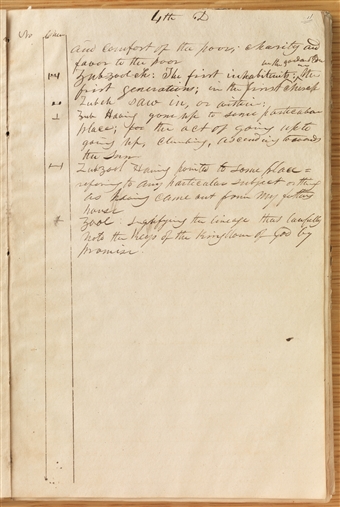 4th D
and comfort of the poor; charity and
favor to the poor
in the garden of Eden
Zubzool-eh: The first inhabitants; the
first generations; in the first church
Zubeh saw in, or within;
Zub Having gone up to some particular
place; for the act of going up to
going up, climbing, ascending towards
the Sun
Zubzool Having pointed to some place
refering to any particular subject or thing
as having came out from My fathers
Zool: Signifying the lineage that lawfully
holds the Keys of the Kingdom of God by
promise